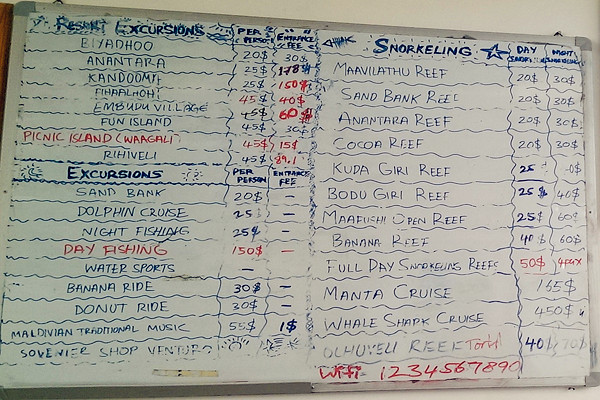 Resort Excursions PER PERSON ENTRANCE FEE
BIYADHOO 20$ 30$
ANANTARA 25$ 178$
KANDOOMA 25$ 150$
FIHAALHOHI 45$ 40$
EMBUDU VILLAGE 45$ 60$
FUN ISLAND 45$ 30$
PICNIC ISLAND (WAAGALI) 45$ 15$
RIHIVELI 45$ 89.1
EXCURSIONS PER PERSON ENTRANCE FEE
SAND BANK 20$ —
DOLPHIN CRUISE 25$ —
NIGHT FISHING 25$ —
DAY FISHING 150$ —
WATER SPORTS —
BANANA RIDE 30$ —
DONUT RIDE 30$ —
MALDIVIAN TRADITIONAL MUSIC 55$ 1$
SOVENIER SHOP VENTURO
SNORKELING DAY NIGHT
MAAVILATHU REEF 20$ 30$
SAND BANK REEF 20$ 30$
ANANTARA REEF 20$ 30$
COCOA REEF 20$ 30$
KUDA GIRI REEF 25 0$
BODU GIRI REEF 25$ 40$
MAAFUSHI OPEN REEF 25$ 60$
BANANA REEF 40$ 60$
FULL DAY SNORKELING REEFS 50$
MANTA CRUISE 165$
WHALE SHARK CRUISE 450$
OLHUVELI REEF 40$ 70
Wifi 1234567890